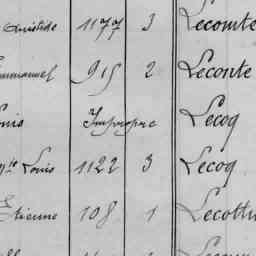 Aristide 1177 3 Lecomte
Emmanuel 915 2 Leconte
Louis Impropre Lecoq
Louis 1122 3 Lecoq
Etienne 108 1 Lecottu